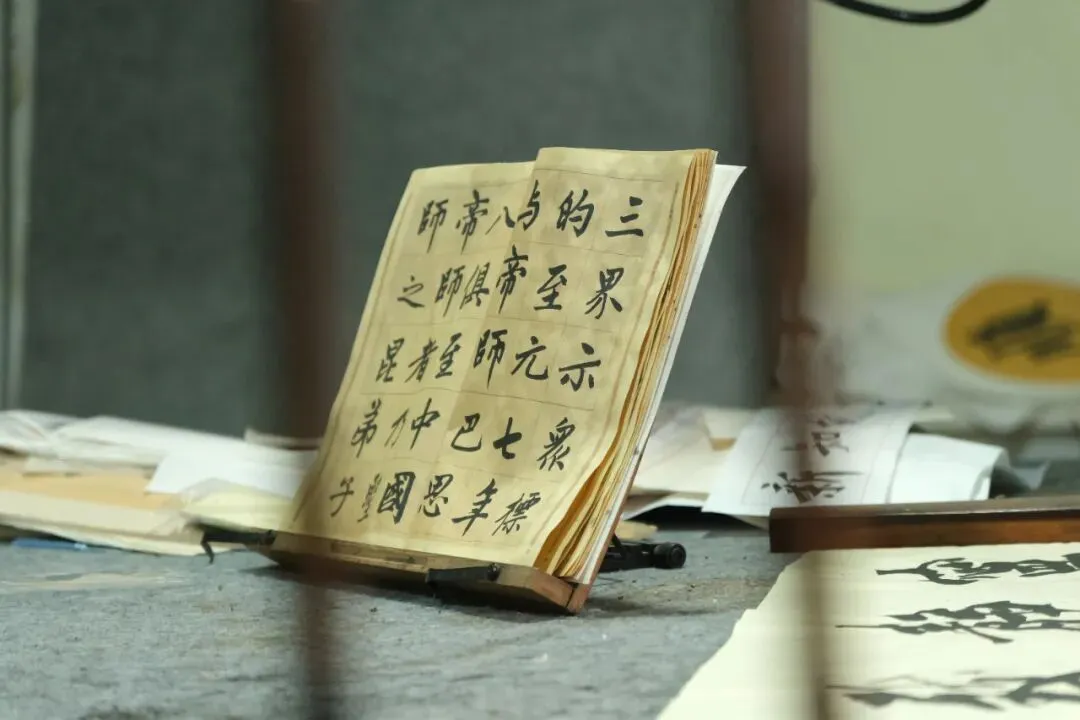 三界示眾標
的至元七年
与帝師巴思
八俱至中國
帝師者乃聖
師之昆弟子